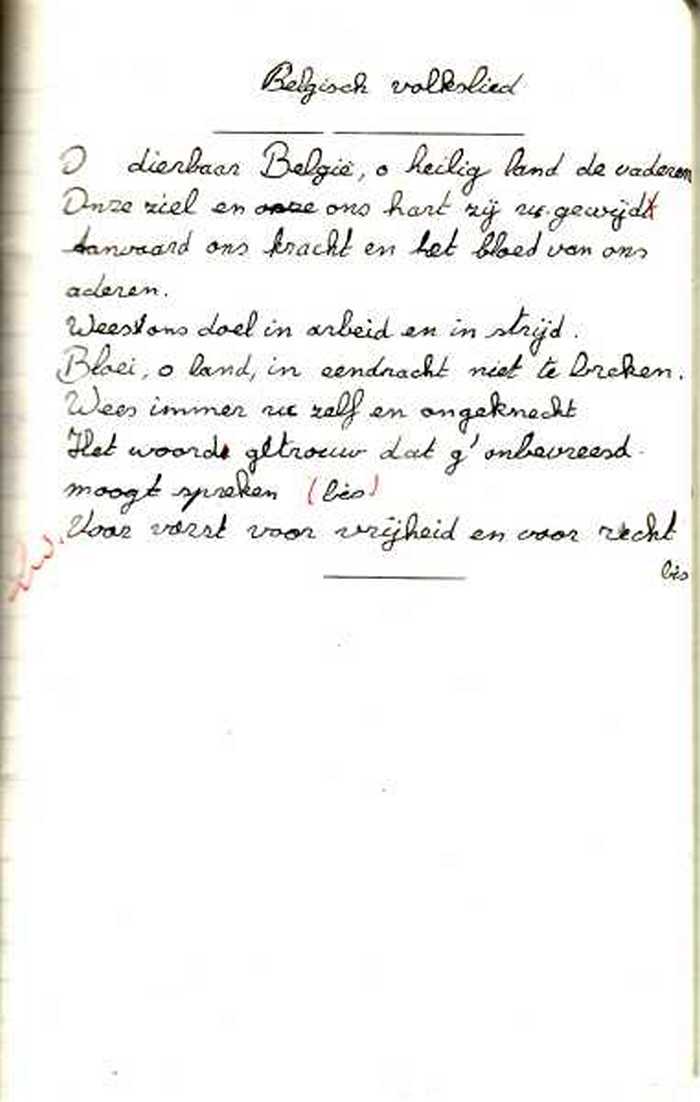 Belgisch volkslied
O dierbaar België, o heilig land de vaderen
Onze ziel en onze ons hart zij u gewijdt
Aanvaard ons kracht en het bloed van ons
aderen.
Weest ons doel in arbeid en in strijd.
Bloei, o land, in eendracht niet te breken.
Wees immer u zelf en ongeknecht
Het woord getrouw dat g' onbevreesd
moogt spreken (bis)
Voor vorst voor vrijheid en voor recht
bis